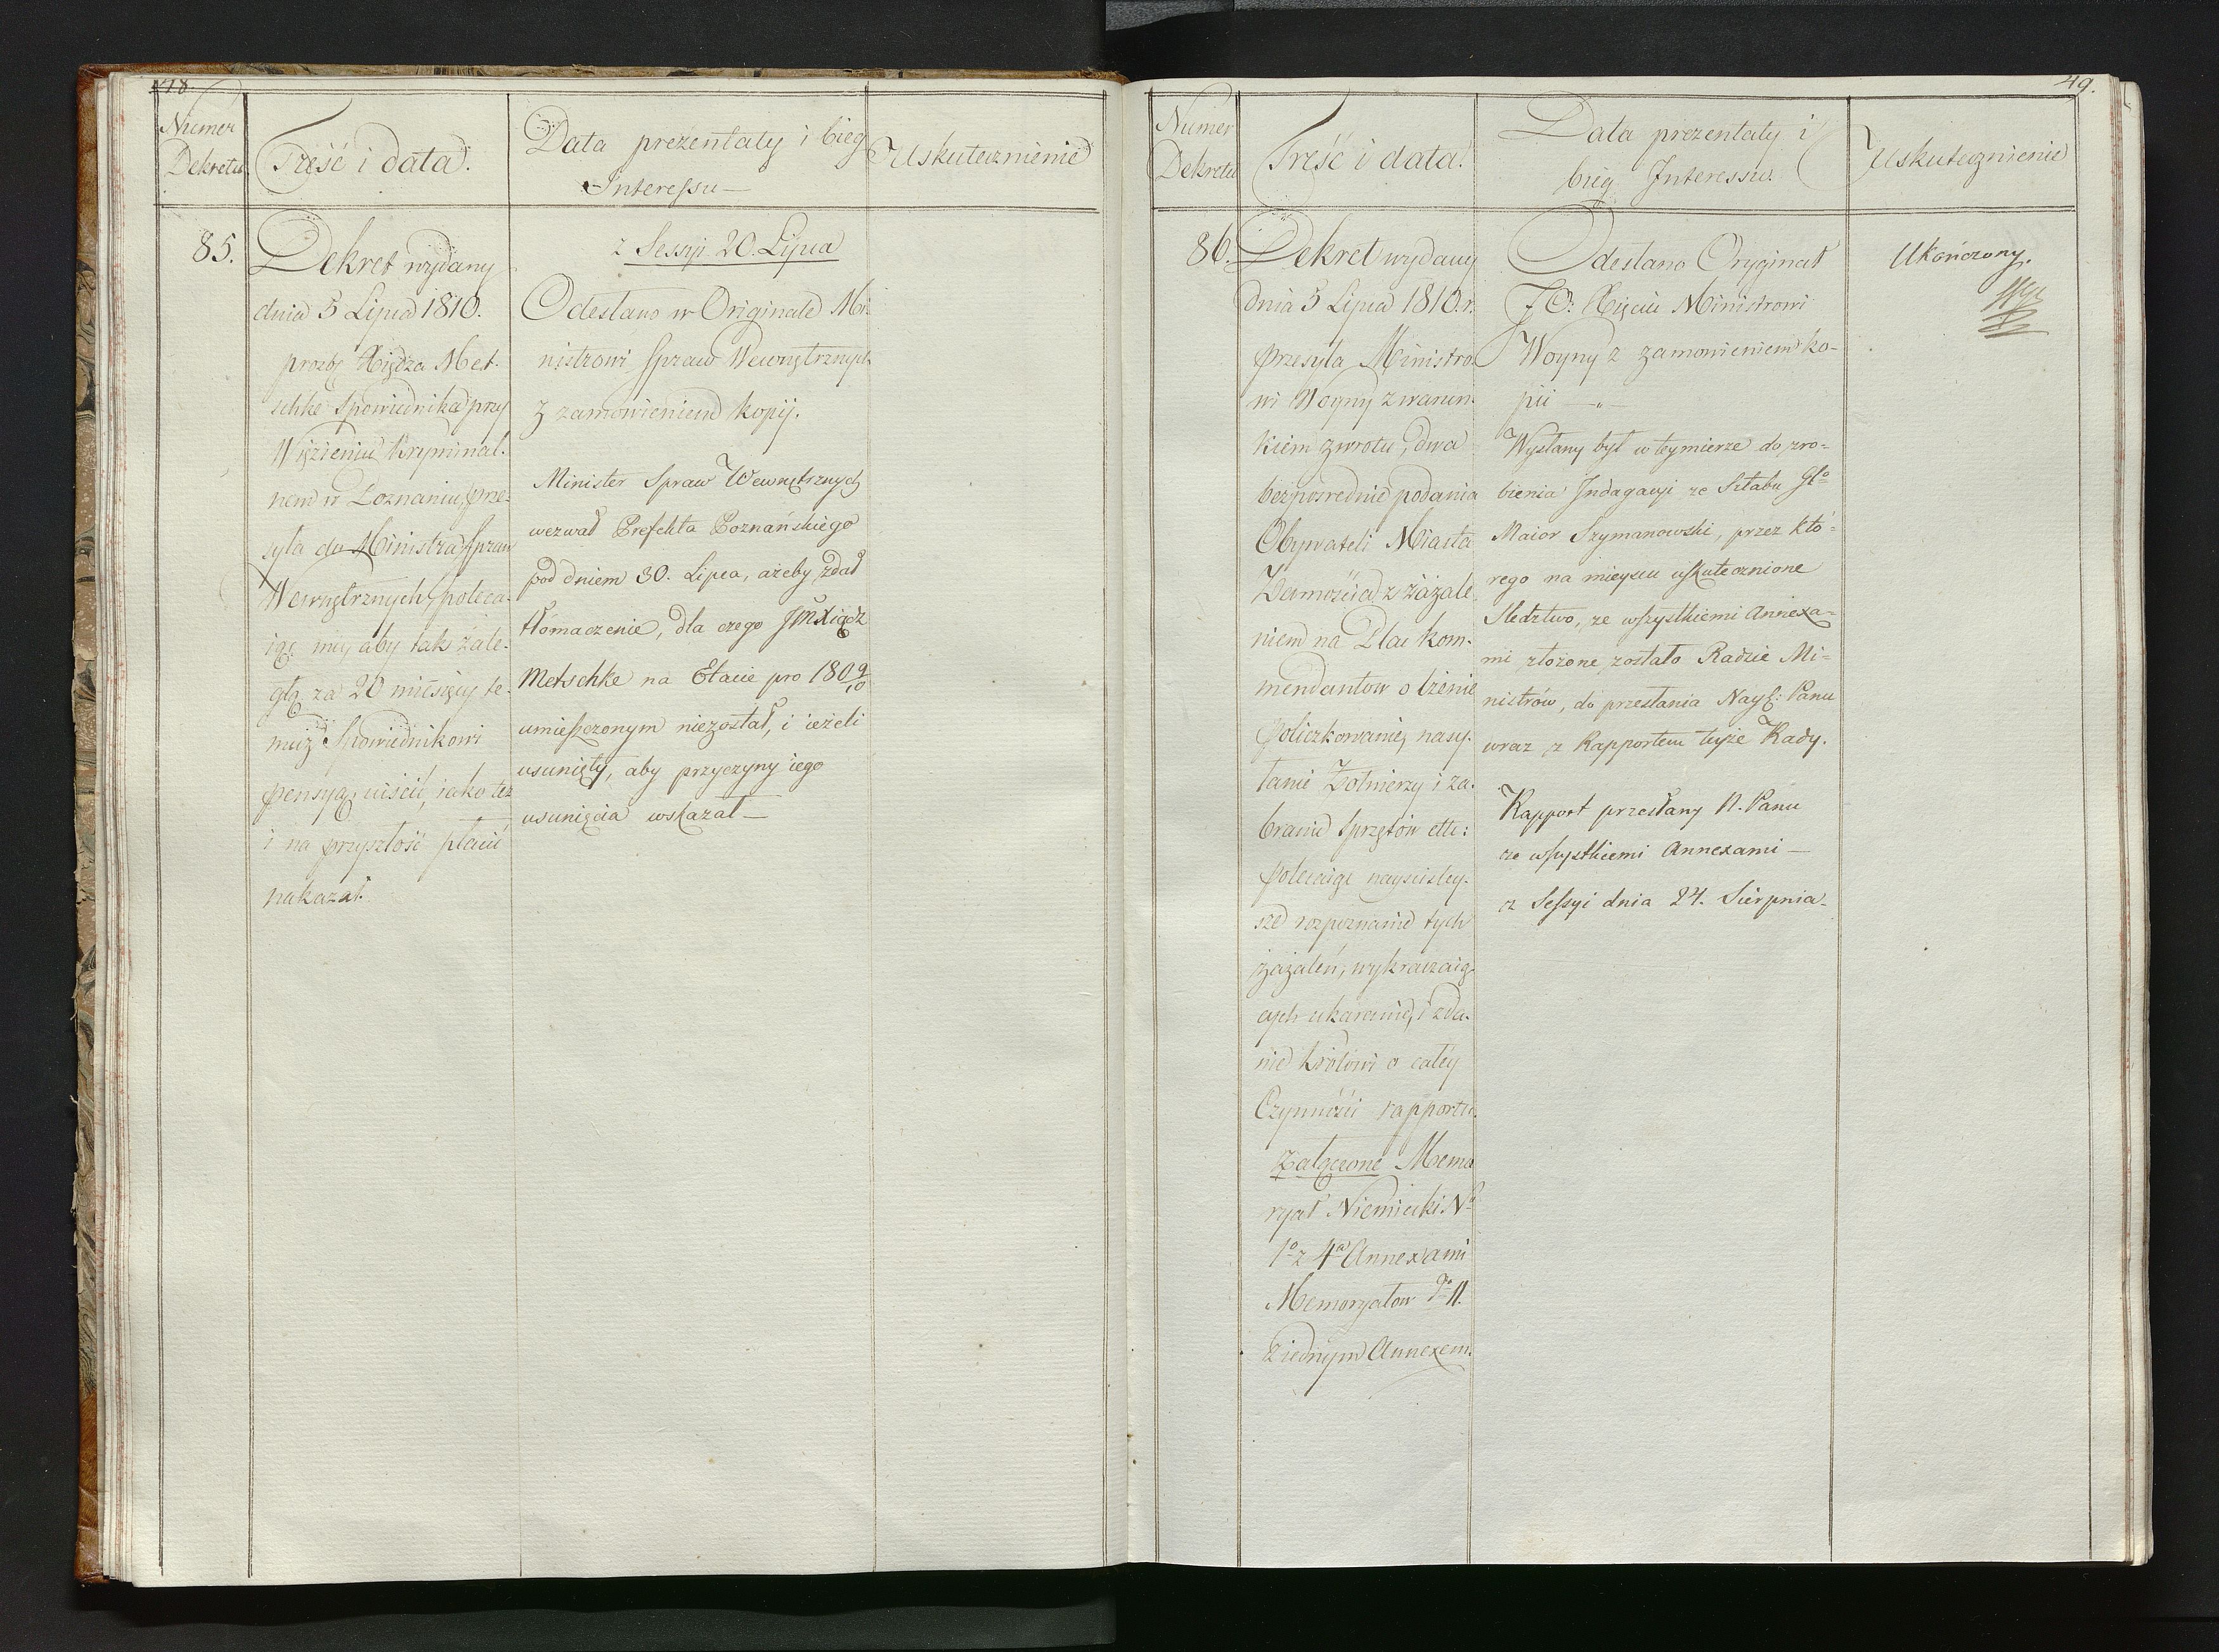 48.
Numer
Dekretu
Treść i data.
Data prezentaty i bieg
Interessu —
Uskutecznienie
85.
Dekret wydany
dnia 5 Lipca 1810.
prozbę Xiędza Met-
schke Spowiednika przy
Więzieniu Kryminal-
nem w Poznaniu, prze-
syła do Ministra Spraw
Wewnętrznych, poleca-
iąc mu, aby tak zale-
głą za 20 miesięcy te-
muż Spowiednikowi
pensyą uiścił, iako też
i na przyszłość płacić
nakazał.
z Sessyi 20. Lipca
Odesłano w Originale Mi-
nistrowi Spraw Wewnętrznych
z zamowieniem kopij.
Minister Spraw Wewnętrznych
wezwał Prefekta Poznańskiego
pod dniem 30. Lipca, ażeby zdał
tłómaczenie, dla czego JmXiądz
Metschke na Etacie pro 1809/10
umieszczonym niezostał, i ieżeli
usunięty, aby przyczyny iego
usunięcia wskazał —
49.
Numer
Dekretu
Treść i data.
Data prezentaty i
bieg Interessu.
Uskutecznienie
86.
Dekret wydany
dnia 5 Lipca 1810. r.
przesyła Ministro-
wi Woyny z warun-
kiem zwrotu, dwa
bezpośrednie podania
Obywateli Miasta
Zamościa z zażale-
niem na Plac kom-
mendantow o lżenie
policzkowanie, nasy-
łanie Żołnierzy i za-
branie sprzętów ettc:
polecaiąc nayściśley-
sze rozpoznanie tych
zażaleń, wykraczaią-
cych ukaranie, i zda-
nie Królowi o całey
Czynności rapportu.
Załączone Memo
ryał Niemiecki No
1o z 4a Annexami
Memoryałow
z iednym Annexem.
Odesłano Oryginał
JO: Xięciu Ministrowi
Woyny z zamowieniem ko-
pii — „ —
Wysłany był w teymierze do zro-
bienia Indagacyi ze Sztabu Glo
Maior Szymanowski, przez któ-
rego na mieyscu uskutecznione
Sledztwo, ze wszystkiemi Annexa-
mi złożone zostało Radzie Mi-
nistrów, do przesłania Nayj: Panu
wraz z Rapportem teyże Rady.
Rapport przesłany N. Panu
ze wszystkiemi Annexami —
z Sessyi dnia 24. Sierpnia.
Ukończony.